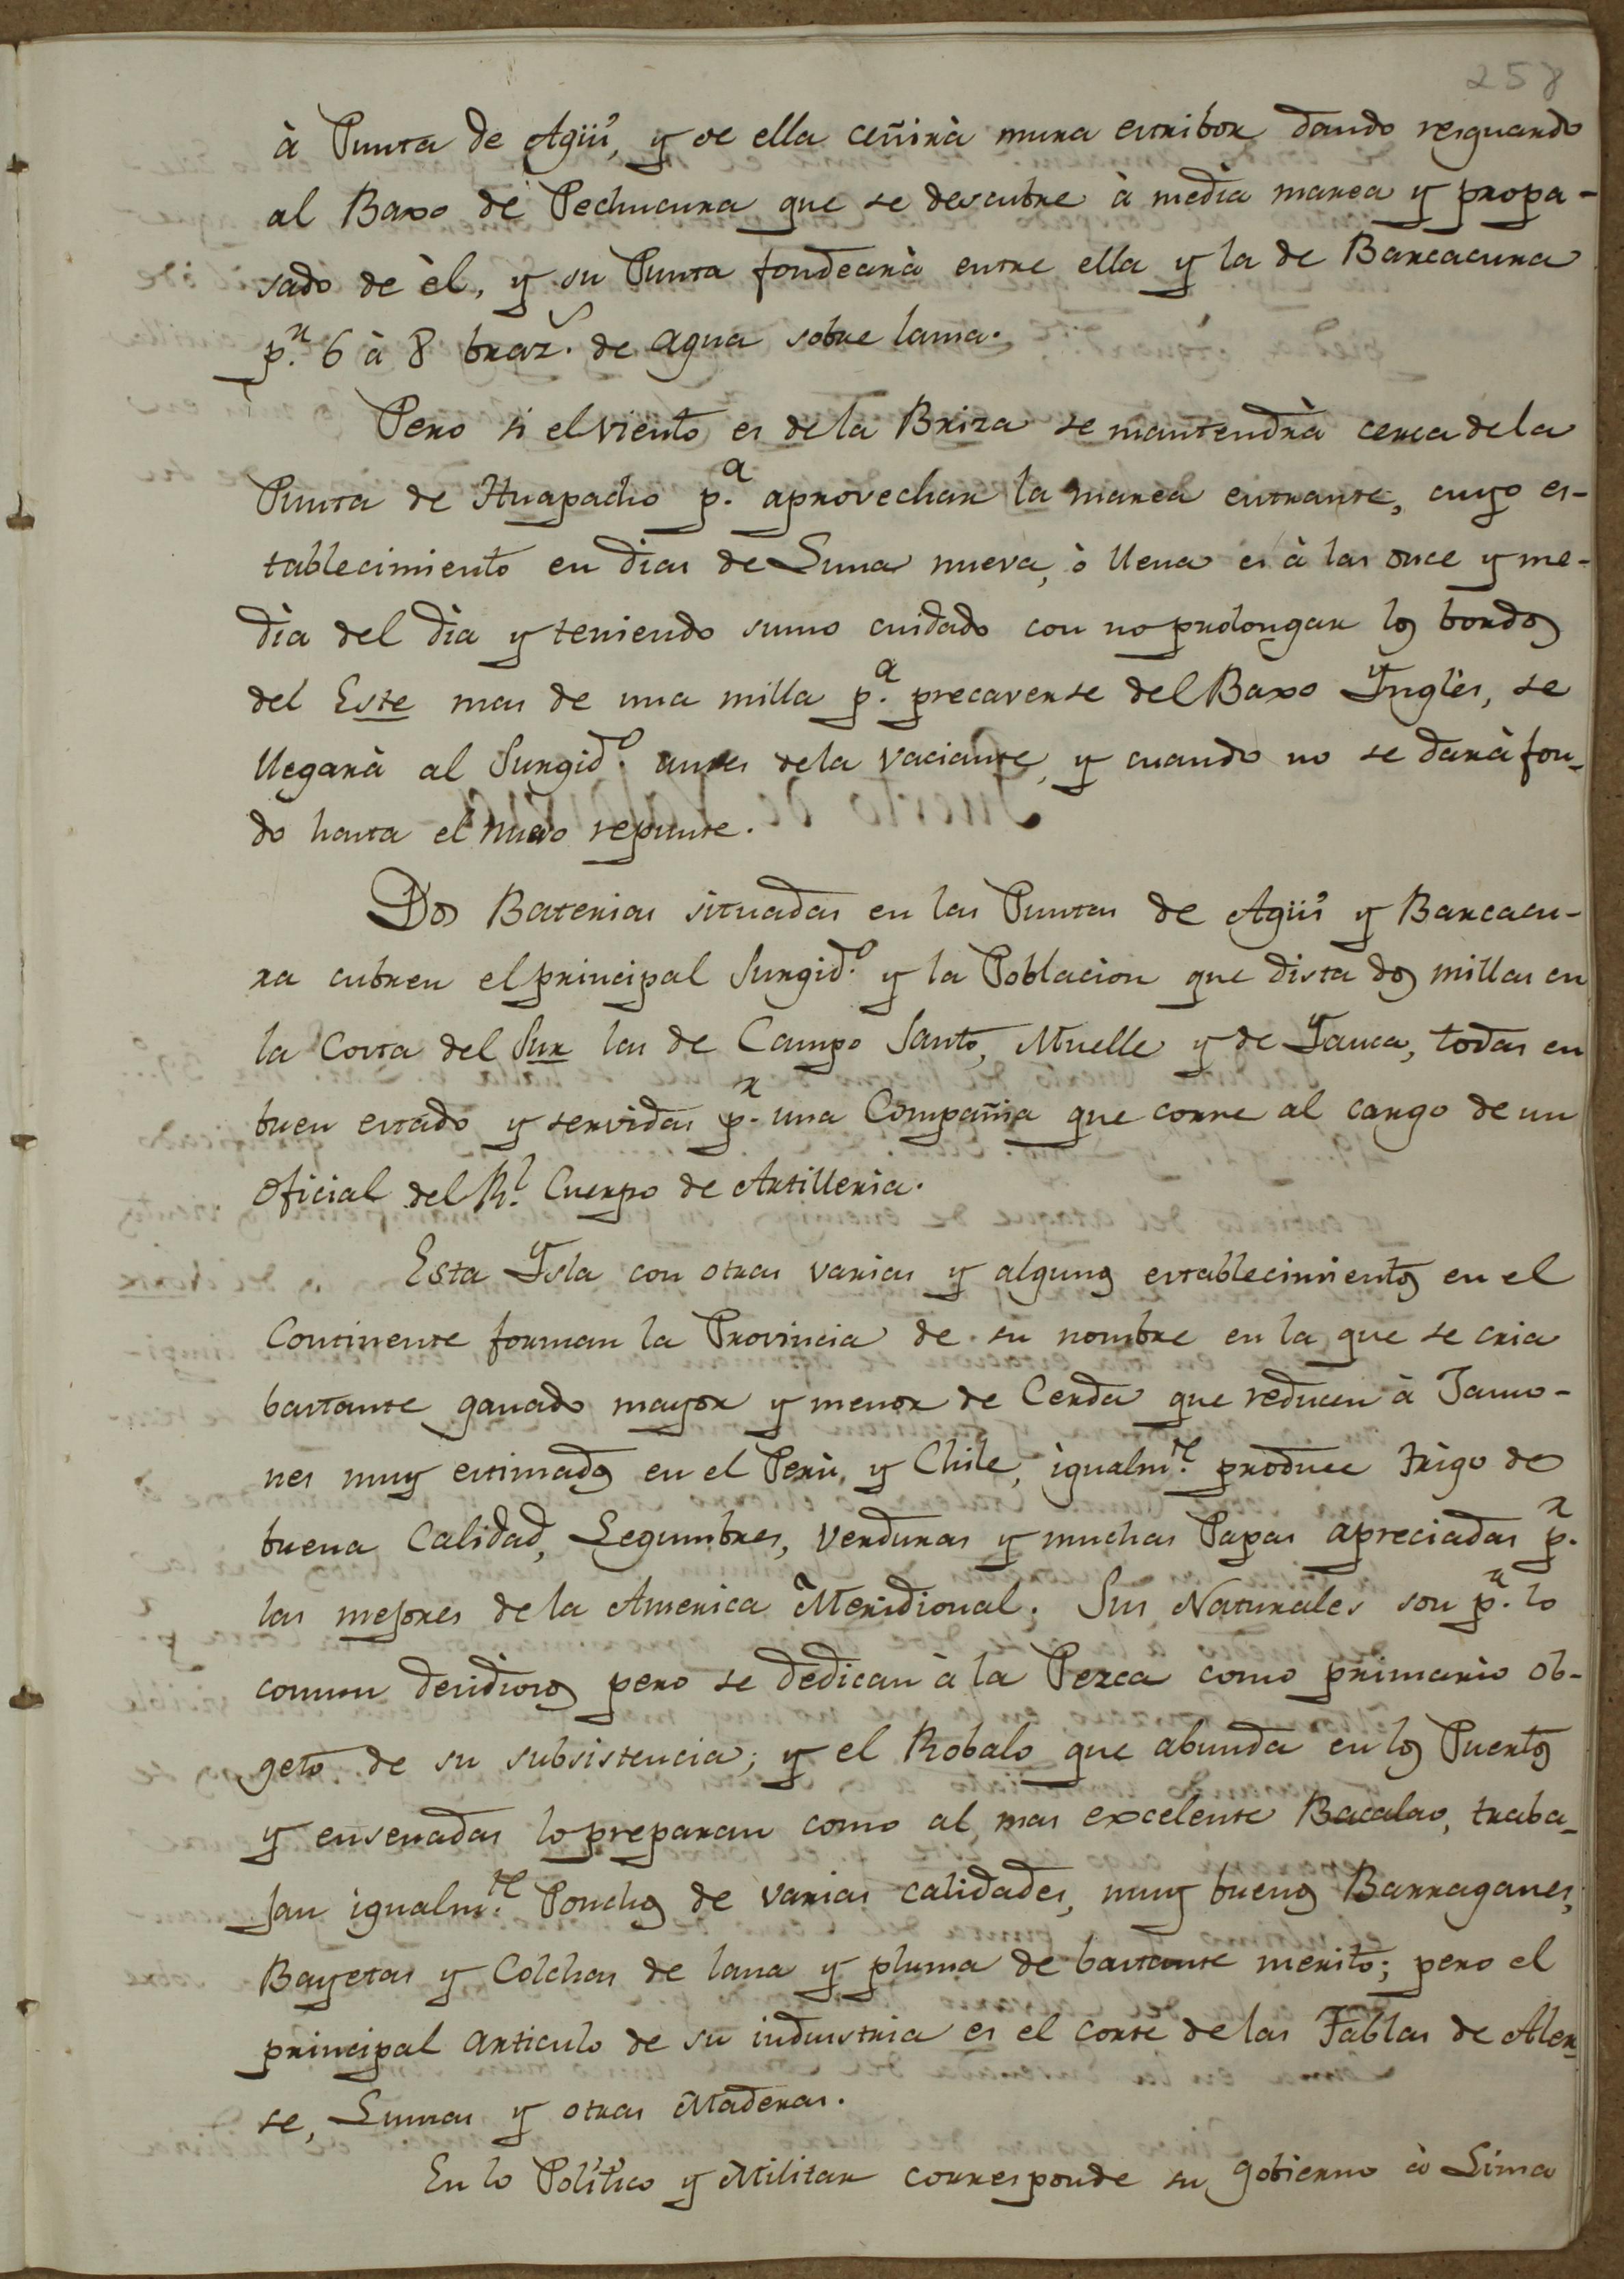 258
à Punta de Agüi, y de ella ceñirà mura estribor dando resguardo
al Baxo de Pechucura que se descubre à media marea y propa-
sado de èl, y su Punta fondearà entre ella y la de Barcacura
p.r 6 à 8 braz.s de agua sobre lama.
Pero si el viento es de la Briza se mantendrà cerca de la
Punta de Huapacho p.a aprovechar la marea entrante, cuyo es-
tablecimiento en dias de Luna nueva, ò llena es à las once y me-
dia del dia y teniendo sumo cuidado con no prolongar los bordos
del Este mas de una milla p.a precaverse del Baxo Ynglès, se
llegarà al Surgid.o antes de la vaciante, y cuando no se darà fon-
do hasta el nuevo repunte.
Dos Baterias situadas en las Puntas de Agüi y Barcacu-
ra cubren el principal Surgid.o y la Poblacion que dista dos millas en
la Costa del Sur las de Campo Santo, Muelle y de Tauca, todas en
buen estado y servidas p.r una Compañia que corre al cargo de un
Oficial del R.l Cuerpo de Artilleria.
Esta Ysla con otras varias y algunos establecimientos en el
Continente forman la Provincia de su nombre en la que se cria
bastante ganado mayor y menor de Cerda que reducen à Jamo-
nes muy estimados en el Perù, y Chile, igualm.te produce trigo de
buena Calidad, Legumbres, Verduras y muchas Papas apreciadas p.r
las mejores de la America Meridional. Sus Naturales son p.r lo
comun desidiosos pero se dedican à la Pezca como primario ob-
geto de su subsistencia; y el Robalo que abunda en los Puertos
y ensenadas lo preparan como al mas excelente Bacalao, traba-
jan igualm.te Ponchos de varias calidades, muy buenos Barraganes,
Bayetas y Colchas de lana y pluma de bastante merito; pero el
principal articulo de su industria es el corte de las Tablas de Aler-
se, Lumas y otras Maderas.
En lo Politico y Militar corresponde su gobierno à Lima